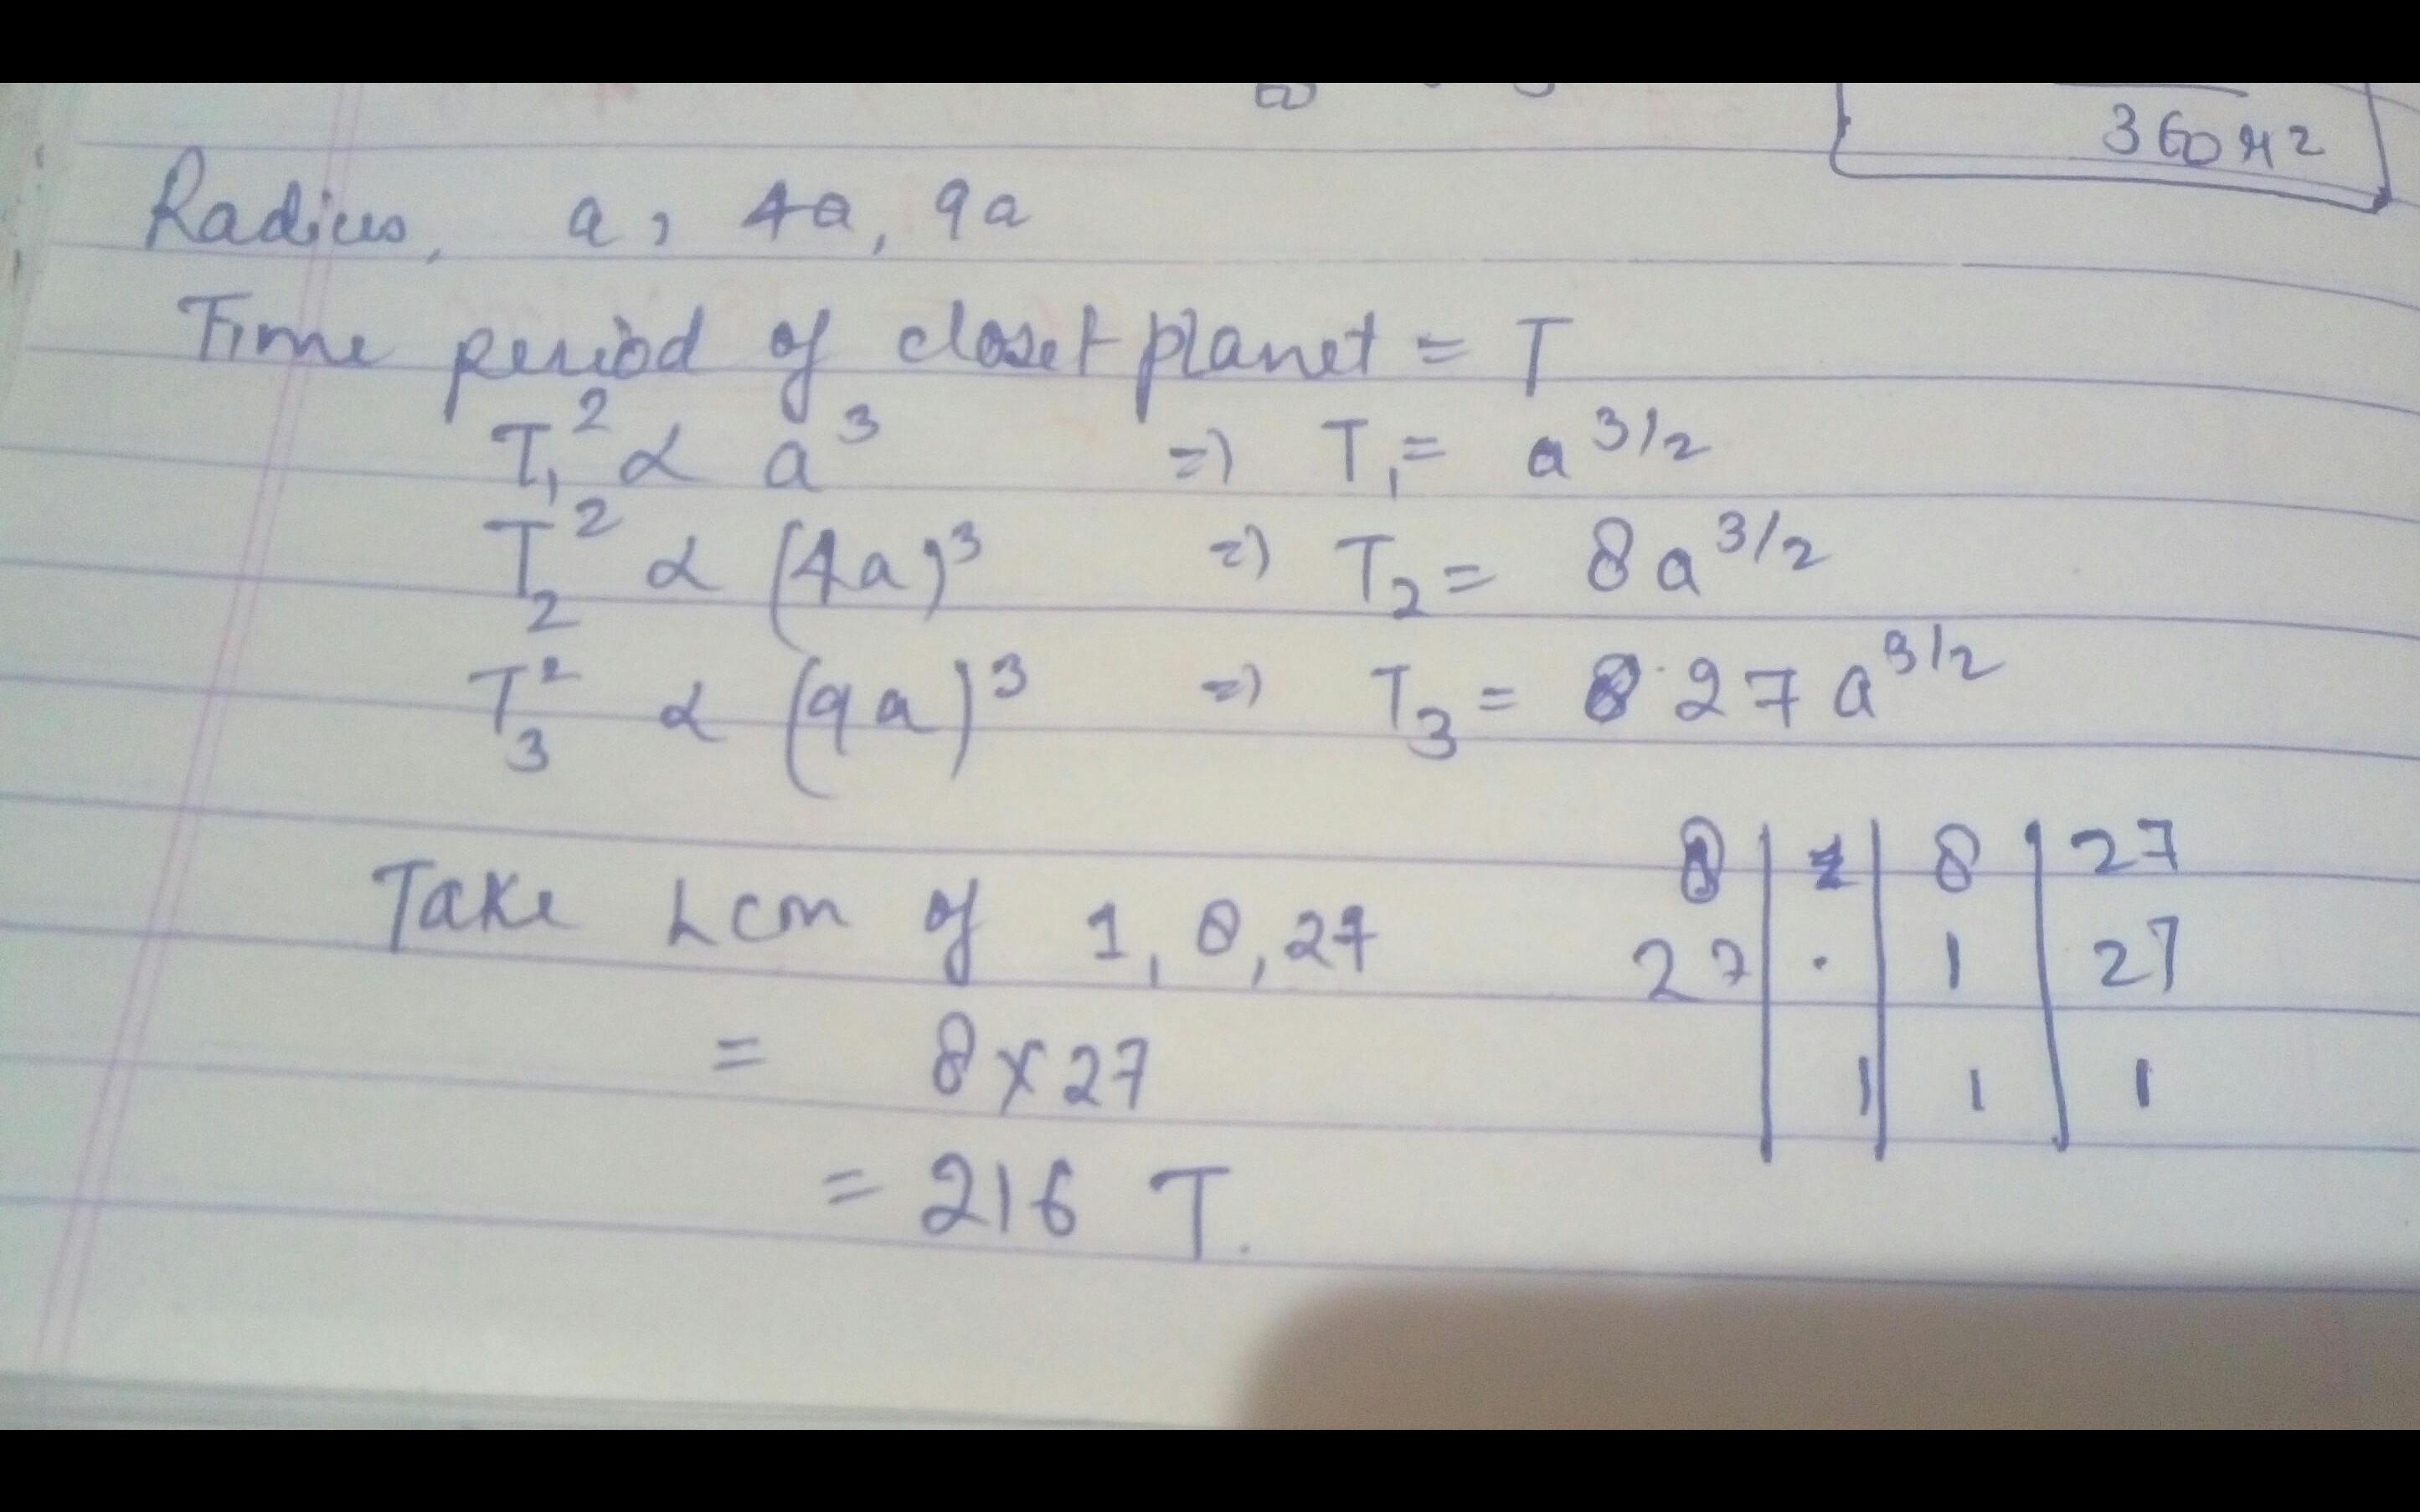 360 Hz
Radius, a, 4a, 9a
Time period of closet planet = T
T₁² ∝ a³ => T₁ = a^3/2
T₂² ∝ (4a)³ => T₂ = 8a^3/2
T₃² ∝ (9a)³ => T₃ = 27a^3/2
Take Lcm of 1, 8, 27
= 8 × 27
= 216 T.
8 | 1 | 8 | 27
27 | . | 1 | 27
| 1 | 1 | 1